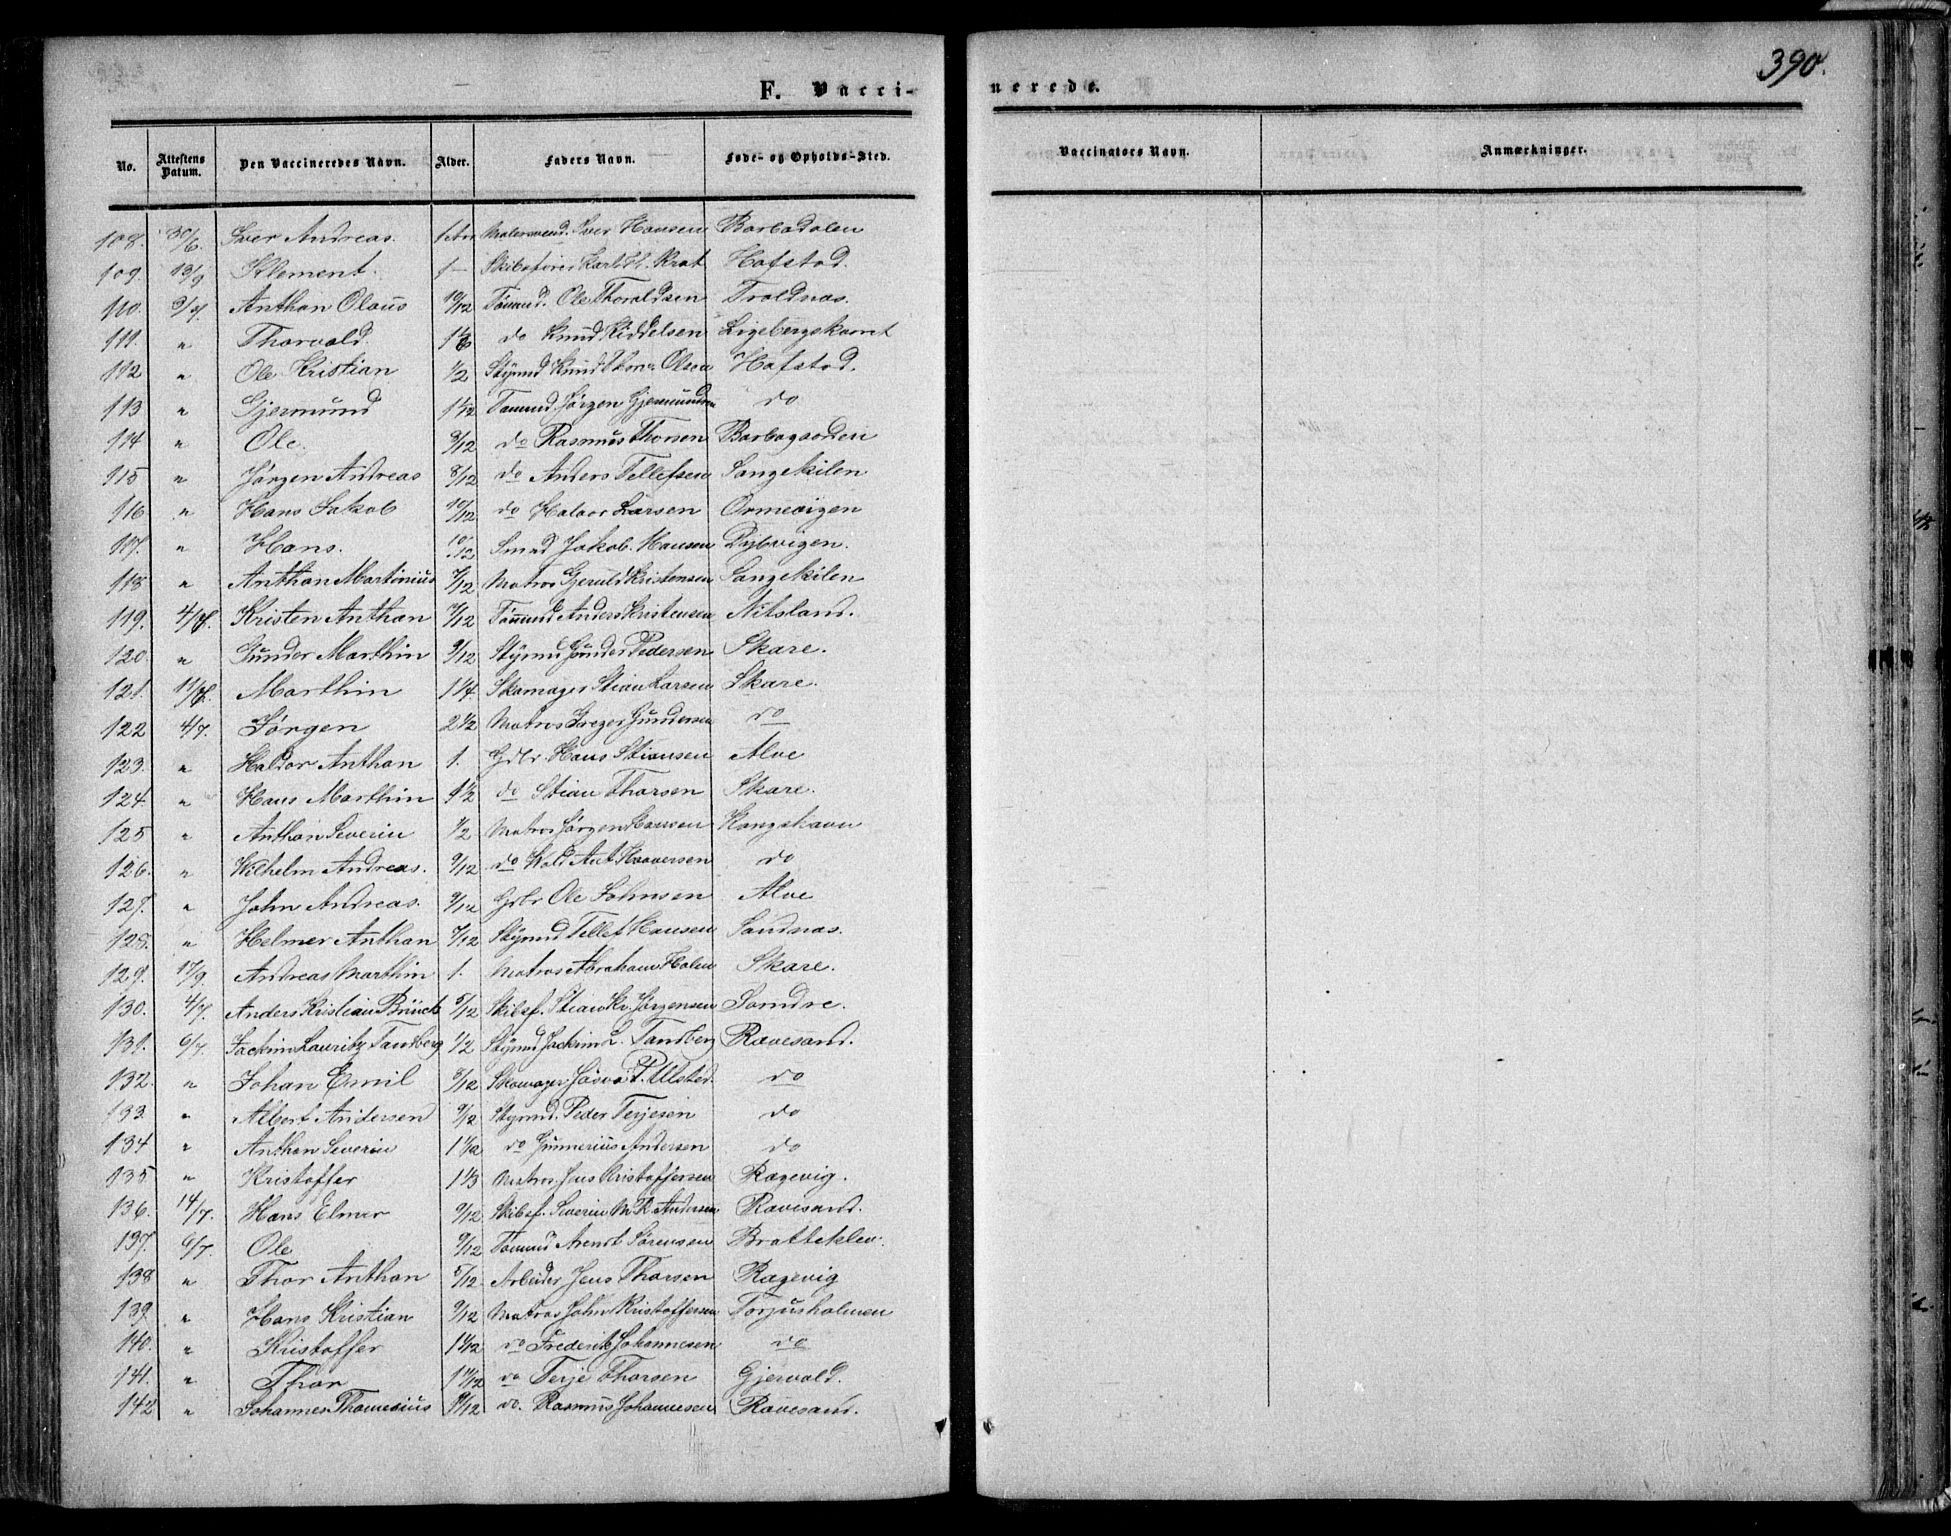 390.
F. Vaccinerede.
No. Attestens Datum. Den Vaccineredes Navn. Alder. Faders Navn. Føde- og Opholds-Sted. Vaccinators Navn. Anmærkninger.
108. 30/6. Iver Andreas. 1 Iver Hansen Barbodalen
109. 13/9 Klement. 1 - Skibsfører Karl Hofstad.
110. 3/7. Anthon Olaus 10/12 Tømmd. Ole Thoraldsen Troldnæs.
111. " Thorvald. do Knud
112 " Ole Kristian 1/2 Stymd Knud Olsen Hofstad.
113 " Gjermund Tømmd Jørgen Gjermundsen do
114 " Ole. 3/12 do Rasmus Thorsen
115 " Jørgen Andreas 8/12 do Anders Tellefsen Songekilen
116 " Hans Jakob 10/12 do Halvor Larsen Ormevigen
117. " Hans. 10/12 Smed Jakob Hansen Dybvigen.
118 " Anthon Martinius 7/12 Matros Gjeruld Kristensen Songekilen
119. 4/7. Kristen Anthon 7/12 Tømmd Anders Kristensen Nitsland.
120. " Gunder Marthin 9/12 Stýrmd Gunder Pedersen Skare.
121. 11/7. Marthin 1 1/4 Skomager Stian Larsen Skare.
122 4/7. Jørgen 2 1/2 Matros Greger Gundersen do
123. " Haldor Anthon 1. Gdbr. Hans Stiansen Alve
124. " Hans Marthin 1 1/2 do Stian Thorsen Skare.
125 " Anthon Severin 1/2 Matros Jørgen Hansen Kongshavn
126. " Wilhelm Andreas. 9/12 do do
127. " John Andreas. 9/12 Gdbr Ole Johnsen Alve
128. " Helmer Anthon 7/12 Stýrmd Tellef Hansen Sandnæs.
129. 17/9. Andreas Marthin 1. Matros Abraham Holm Skare.
130. 4/7. Anders Kristian Brück 5/12 Skibsf. Stian Kr. Jørgensen Søndre.
131. 6/7. Jackrim Lauritz Tandberg 1/2 Stýrmd Jackrim L. Tandberg Revesand.
132. " Johan Emil 5/12 Skomager Josva P. Ulsted. do
133 " Albert Andersen 9/12 Stýrmd. Peder Terjesen do
134 " Anthon Severin do Gunnerius Andersen do
135 " Kristoffer 1 1/3 Matros Jens Kristoffersen Rægevig.
136. 14/7. Hans Elmer 9/12 Skibsf. Severin M. R. Andersen Revesand.
137. 6/7. Ole 9/12 Tømmd Arendt Sørensen Bratteklev.
138 " Thor Anthon 5/12. Arbeider Jens Thorsen Rægevig
139. " Hans Kristian 9/12 Matros John Kristoffersen Torjusholmen
140. " Kristoffer 1 1/12 do Frederik Johannesen do
141. " Thor 1 11/12 do Terje Thorsen Gjervold.
142 " Johannes Thomesius 9/12 do. Rasmus Johannesen Revesand.